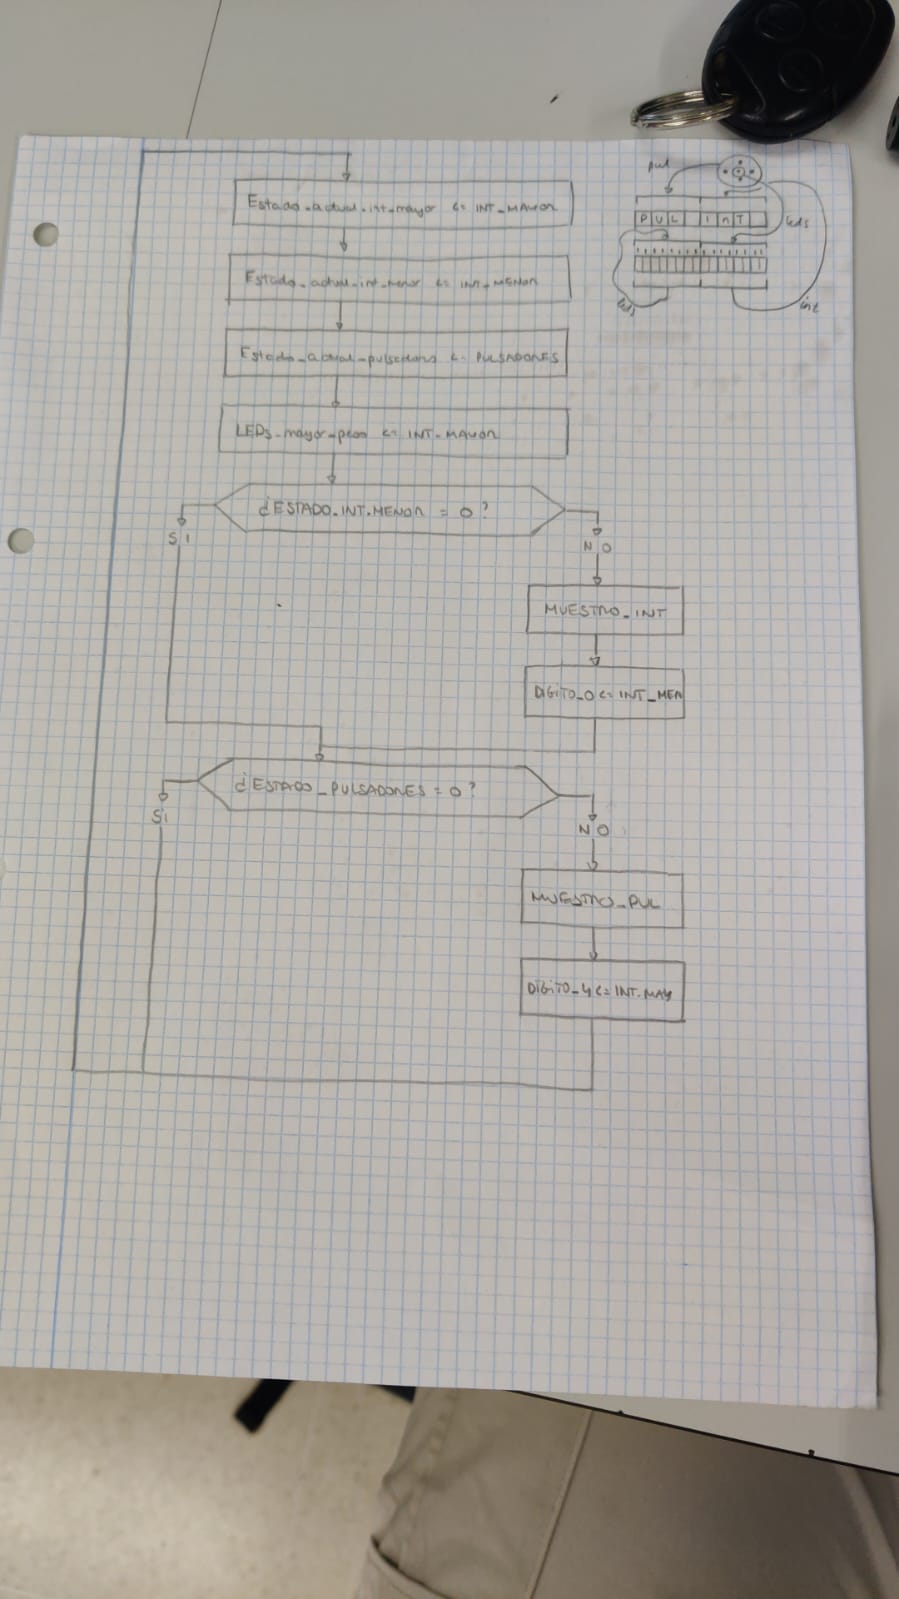 pul
P U L I n T
leds
leds
int
Estado_actual_int_mayor <= INT_MAYOR
Estado_actual_int_menor <= INT_MENOR
Estado_actual_pulsadores <= PULSADORES
LEDs_mayor_peso <= INT_MAYOR
¿ESTADO_INT.MENOR = 0?
SI
NO
MUESTRO_INT
DIGITO_0 <= INT_MEN
¿ESTADO_PULSADORES = 0?
Si
NO
MUESTRO_PUL
DIGITO_4 <= INT.MAY